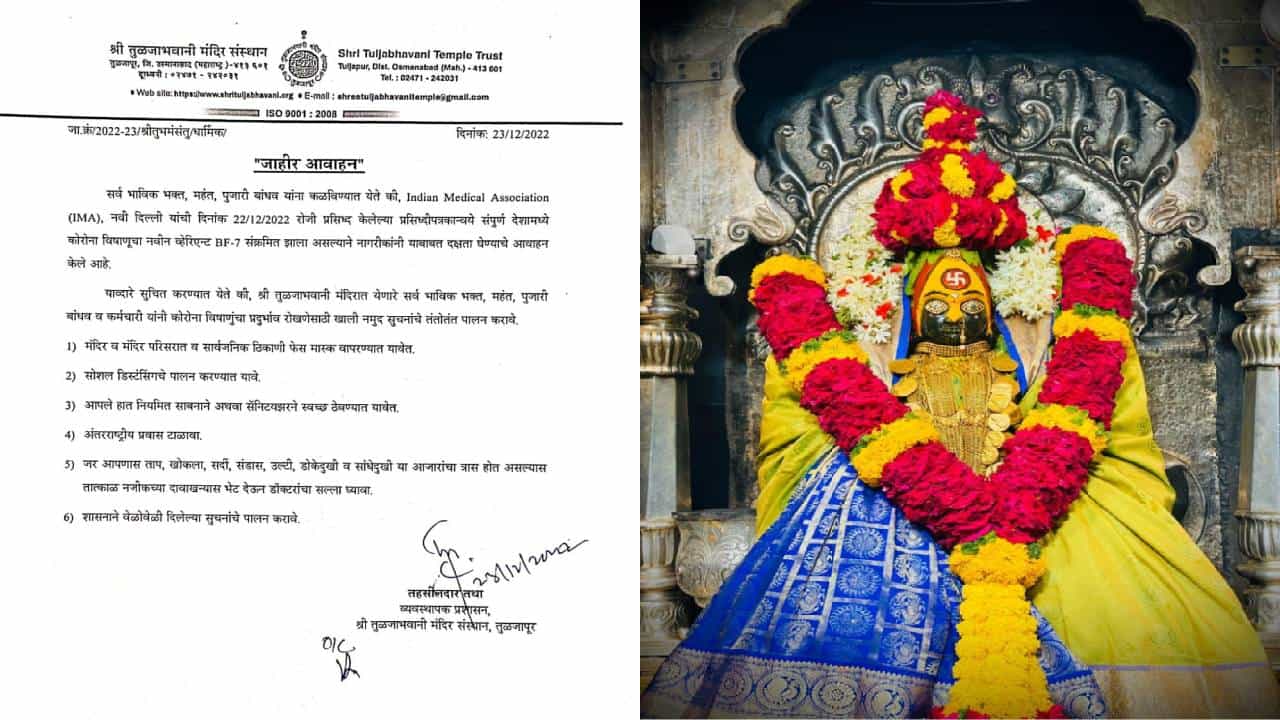 श्री तुळजाभवानी मंदिर संस्थान
तुळजापूर, जि. उस्मानाबाद (महाराष्ट्र)-४१३ ६०१
दूरध्वनी : ०२४७१ - २४२०३१
Shri Tuljabhavani Temple Trust
Tuljapur, Dist. Osmenabad (Mah.) - 413 601
Tel. : 02471 - 242031
♦ Web site: https://www.shrituljabhavani.org ♦ E-mail : shreetuljabhavanitemple@gmail.com
ISO 9001 : 2008
जा.क्रं/2022-23/श्रीतुभमंसंतु/धार्मिक/ दिनांक: 23/12/2022
"जाहीर आवाहन"
सर्व भाविक भक्त, महंत, पुजारी बांधव यांना कळविण्यात येते की, Indian Medical Association
(IMA), नवी दिल्ली यांची दिनांक 22/12/2022 रोजी प्रसिध्द केलेल्या प्रसिध्दीपत्रकान्वये संपुर्ण देशामध्ये
कोरोना विषाणूचा नवीन व्हेरिएन्ट BF-7 संक्रमित झाला असल्याने नागरीकांनी याबाबत दक्षता घेण्याचे आवाहन
केले आहे.
याव्दारे सुचित करण्यात येते की, श्री तुळजाभवानी मंदिरात येणारे सर्व भाविक भक्त, महंत, पुजारी
बांधव व कर्मचारी यांनी कोरोना विषाणुंचा प्रदुर्भाव रोखणेसाठी खाली नमुद सुचनांचे तंतोतंत पालन करावे.
1) मंदिर व मंदिर परिसरात व सार्वजनिक ठिकाणी फेस मास्क वापरण्यात यावेत.
2) सोशल डिस्टंसिंगचे पालन करण्यात यावे.
3) आपले हात नियमित साबनाने अथवा सॅनिटयझरने स्वच्छ ठेवण्यात यावेत.
4) अंतरराष्ट्रीय प्रवास टाळावा.
5) जर आपणास ताप, खोकला, सर्दी, संडास, उल्टी, डोकेदुखी व सांधेदुखी या आजारांचा त्रास होत असल्यास
तात्काळ नजीकच्या दावाखन्यास भेट देऊन डॉक्टरांचा सल्ला घ्यावा.
6) शासनाने वेळोवेळी दिलेल्या सुचनांचे पालन करावे.
तहसीलदार तथा
व्यवस्थापक प्रशासन,
श्री तुळजाभवानी मंदिर संस्थान, तुळजापूर